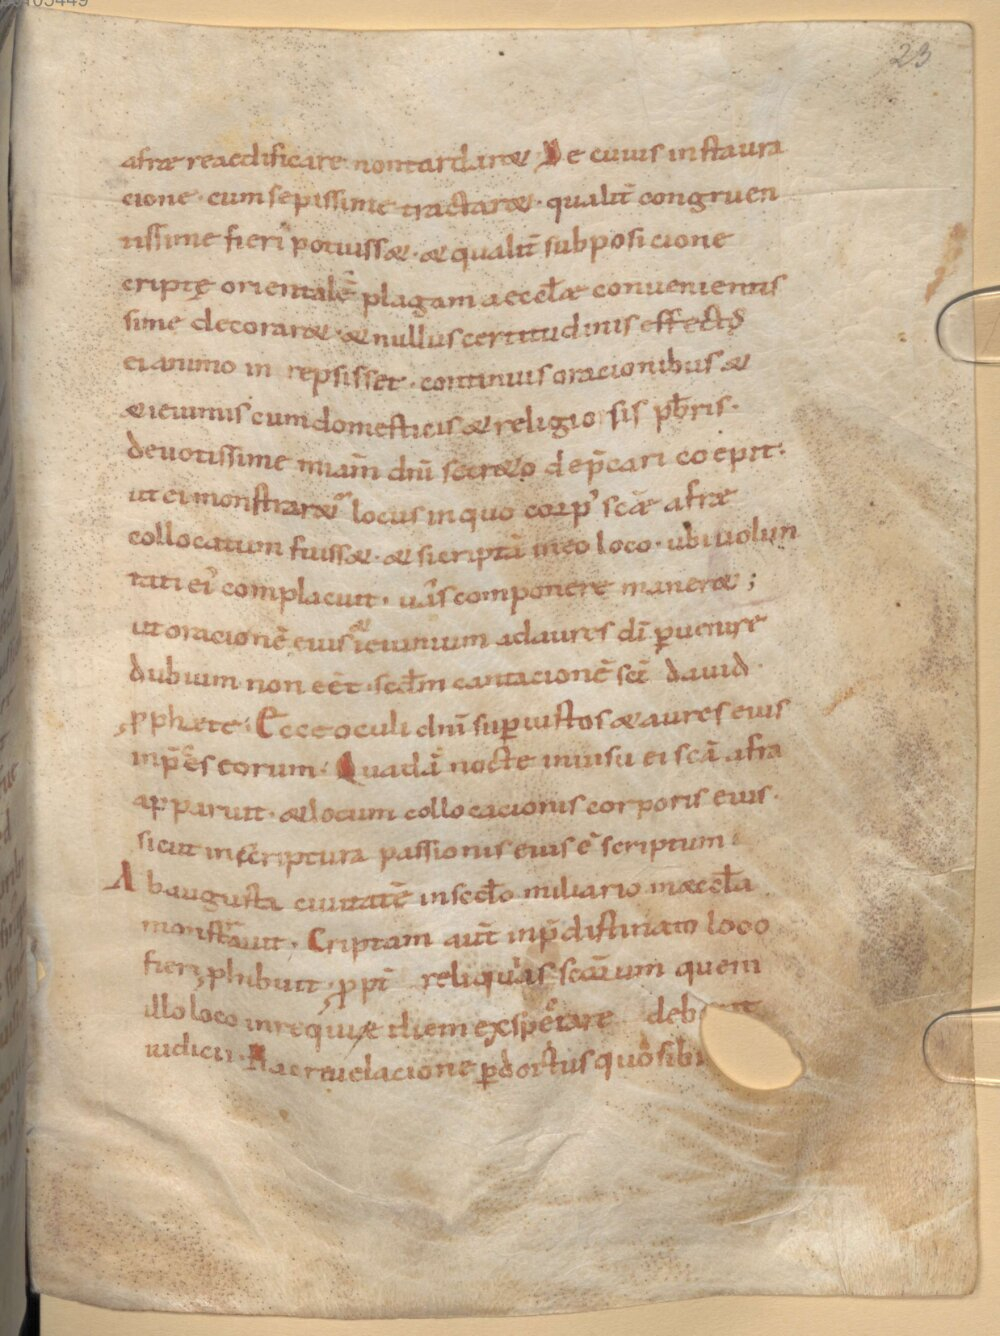 23
afrae reaedificare non tardaret. De cuius instaura
cione· cum sepissime tractaret· qualit̄ congruen
tissime fieri potuisset· et qualit̄ sub posicione
criptę orientalē plagam aeccl̄ae convenientis
sime decoraret· et nullus certitudinis effectus
ei animo in repsisset· continuis oracionibus et
et ieiuniis cum domesticis et religio sis pb̄ris·
devotissime miam̄ dn̄i secreto dep̄cari coepit·
ut ei monstraret locus in quo corp' scāe afrae
collocatum fuisset· et si criptā in eo loco· ubi uolun
tati ei' complacuit· componere maneret ;
ut oracionē eius et ieiunium ad aures dī peruenire
dubium non eēt· scdm̄ cantacionē scī david·
pphaete· Ecce oculi dn̄i sup iustos et aures eius
in p̄ces eorum· Quadā nocte in uisu ei scā afra
apparuit· et locum collocacionis corporis eius·
sicut in scriptura passionis eius ē scriptum
Ab augusta ciuitatē in secdo miliario in aeccl̄a
monstrauit· Criptam aut̄ in p̄distinato loco
fieri phibuit· pp̄t reliquias scārum quem
illo loco in requiae diem exspectare
iudicii· Hac reuelacione pdoctus quo sibi